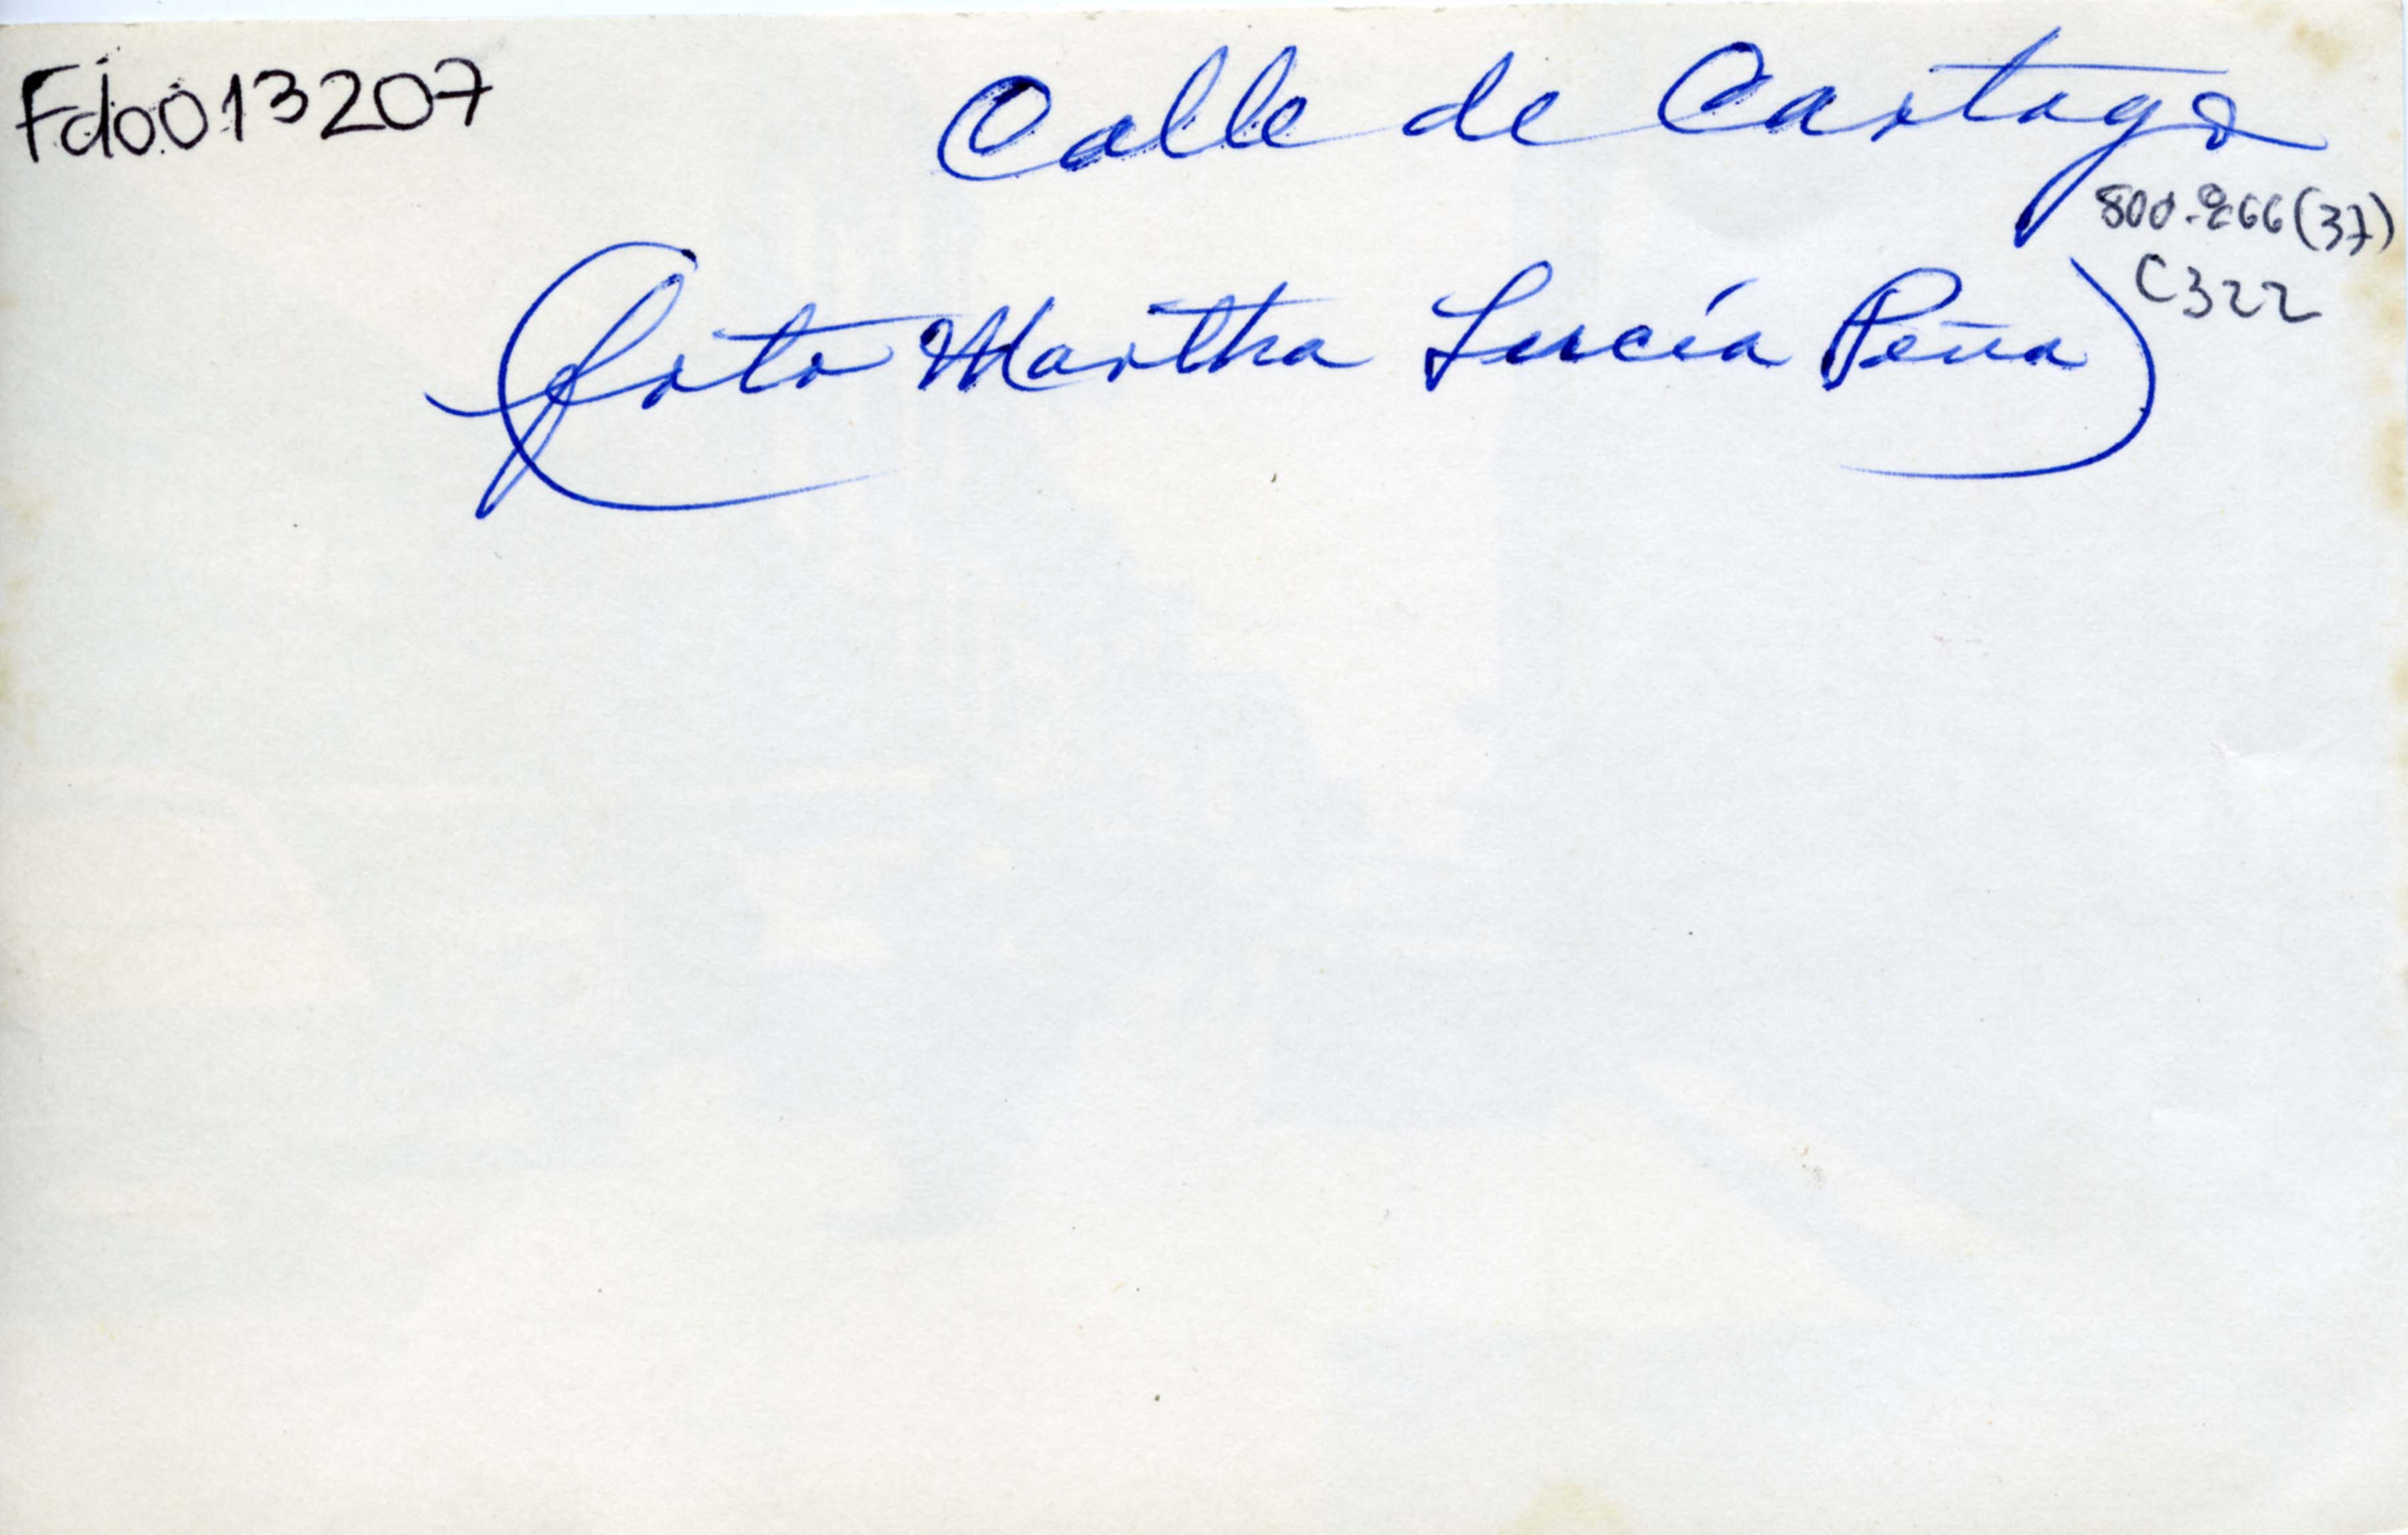 Fdo013207
Calle de Cartago
800-266(37)
C322
(foto Martha Lucía Peña)